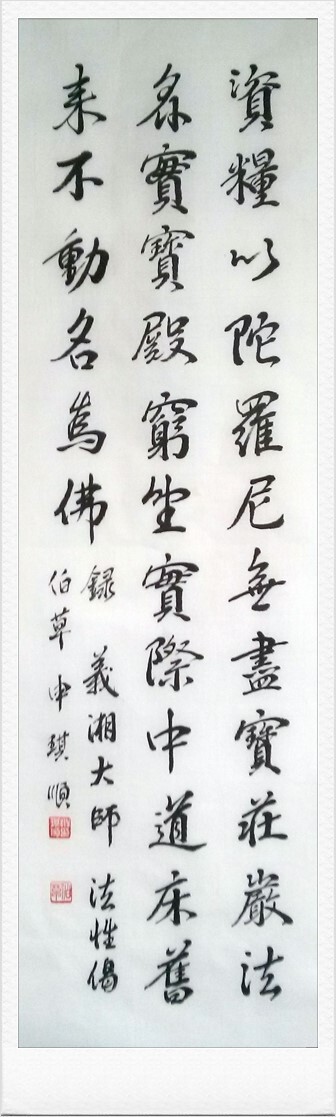 資糧以陀羅尼無盡寶莊嚴法
界實寶殿窮坐實際中道床舊
来不動名為佛
録 義湘大師 法性偈
伯草 申琪順